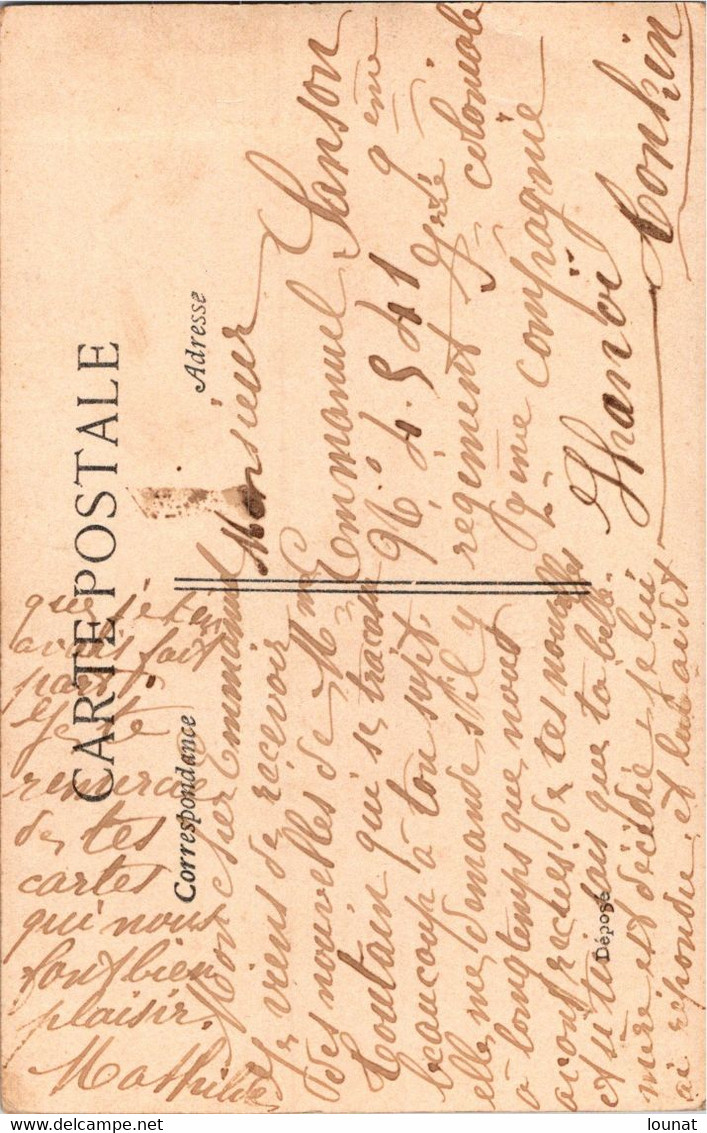 CARTE POSTALE
Correspondance
Adresse
Mon cher Emmanuel
Je viens de recevoir
des nouvelles de Mme
Toutain qui se tracasse
beaucoup à ton sujet.
elle me demande s'il y
a longtemps que nous
avons reçu de tes nouvelles
et si tu sais que ta belle-
mère est décédée je lui
ai répondu et lui ai dit
que je t'en
avais fait
part.
Je te
remercie
de tes
cartes
qui nous
font bien
plaisir.
Mathilde
Monsieur
Emmanuel Sanson
No 4.541 9eme
régement Gnie coloniale
9eme compagnie
à Hanoï Tonkin
Déposé
lounat